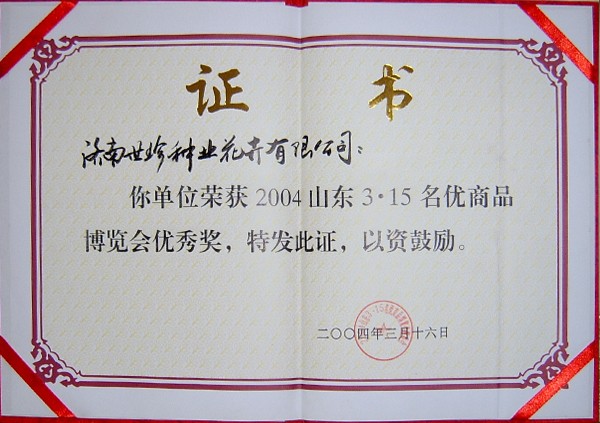 证 书
济南世珍种业花卉有限公司：
你单位荣获 2004 山东 3·15 名优商品
博览会优秀奖，特发此证，以资鼓励。
二〇〇四年三月十六日